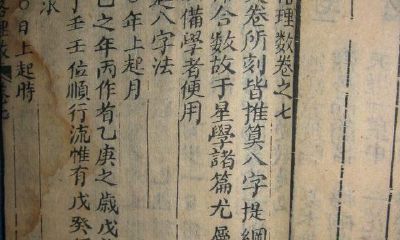 理数卷之七
卷所刻皆推算八字提綱
合数故于星學諸篇尤
備學者便用
八字法
○年上起月
己之年丙作首乙庚之歳戊
于壬壬位順行流惟有戊癸
求
○日上起時
理数